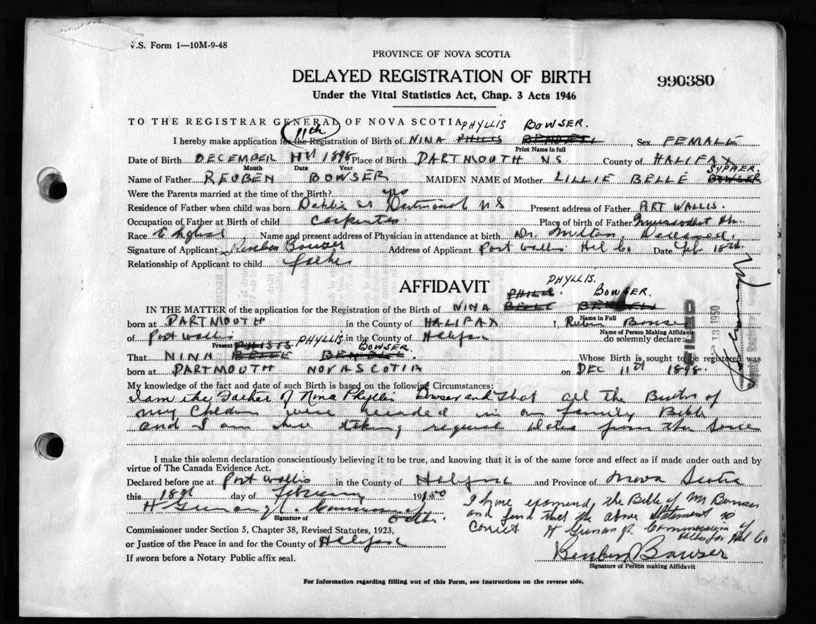 V.S. Form 1—10M-9-48
PROVINCE OF NOVA SCOTIA
DELAYED REGISTRATION OF BIRTH
990380
Under the Vital Statistics Act, Chap. 3 Acts 1946
TO THE REGISTRAR GENERAL OF NOVA SCOTIA PHYLLIS BOWSER.
11th
I hereby make application for the Registration of Birth of NINA PHILIS Sex FEMALE
Print Name in full
Date of Birth DECEMBER 1898 Place of Birth DARTMOUTH N.S. County of HALIFAX
Month Date Year
SYPHER.
Name of Father REUBEN BOWSER MAIDEN NAME of Mother LILLIE BELLE BOWSER
Were the Parents married at the time of the Birth? yes
Residence of Father when child was born Dahlia St Dartmouth N S Present address of Father PORT WALLIS.
Occupation of Father at Birth of child Carpenter Place of birth of Father
Race English Name and present address of Physician in attendance at birth Dr. Milton Deceased.
Signature of Applicant Reuben Bowser Address of Applicant Port Wallis Hfx Co Date Feb 18th
Relationship of Applicant to child father
AFFIDAVIT
PHYLLIS.
PHILIS BOWSER.
IN THE MATTER of the application for the Registration of the Birth of NINA BELLE
Name in Full
born at DARTMOUTH in the County of HALIFAX I, Reuben Bowser
Name of Person Making Affidavit
of Port Wallis in the County of Halifax do solemnly declare:
Present PHYLLIS. BOWSER.
That NINA BELLE Whose Birth is sought to be registered was
born at DARTMOUTH NOVA SCOTIA on DEC 11th 1898.
My knowledge of the fact and date of such Birth is based on the following Circumstances:
I am the Father of Nina Phyllis Bowser and that all the Births of
my Children were recorded in our family Bible
and I am here taking required dates from the same
FILED
13 1950
I make this solemn declaration conscientiously believing it to be true, and knowing that it is of the same force and effect as if made under oath and by
virtue of The Canada Evidence Act.
Declared before me at Port Wallis in the County of Halifax and Province of Nova Scotia
this 18th day of February 1950
Signature of
I have examined the Bible of Mr Bowser
and find that the above statement is
correct
Commissioner under Section 5, Chapter 38, Revised Statutes, 1923,
or Justice of the Peace in and for the County of Halifax
If sworn before a Notary Public affix seal.
Reuben Bowser
Signature of Person making Affidavit
For Information regarding filling out of this Form, see Instructions on the reverse side.